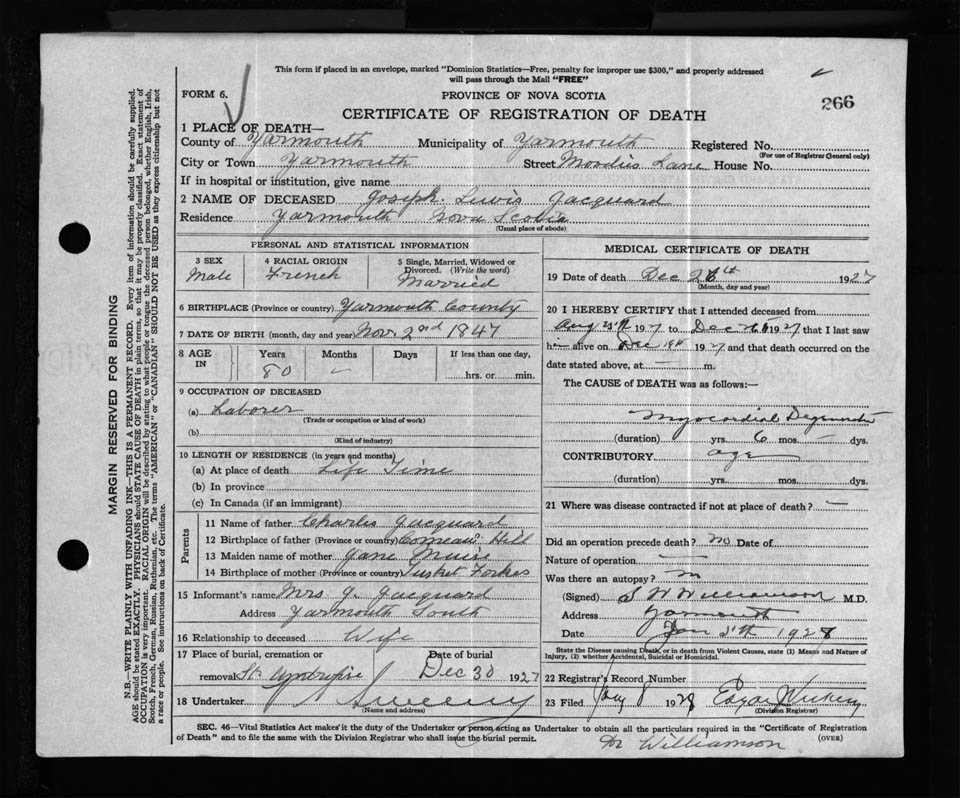 This form if placed in an envelope, marked "Dominion Statistics—Free, penalty for improper use $300," and properly addressed
will pass through the Mail "FREE"
FORM 6.
PROVINCE OF NOVA SCOTIA
266
CERTIFICATE OF REGISTRATION OF DEATH
1 PLACE OF DEATH—
County of Yarmouth Municipality of Yarmouth Registered No.
(For use of Registrar General only)
City or Town Yarmouth Street Moodies Lane House No.
If in hospital or institution, give name
2 NAME OF DECEASED Joseph Lewis Jacquard
Residence Yarmouth Nova Scotia
(Usual place of abode)
PERSONAL AND STATISTICAL INFORMATION
3 SEX 4 RACIAL ORIGIN 5 Single, Married, Widowed or
Divorced. (Write the word)
Male French Married
6 BIRTHPLACE (Province or country) Yarmouth County
7 DATE OF BIRTH (month, day and year) Nov. 2nd 1847
8 AGE IN Years Months Days If less than one day,
80 — hrs. or min.
9 OCCUPATION OF DECEASED
(a) Laborer
(Trade or occupation or kind of work)
(b)
(Kind of industry)
10 LENGTH OF RESIDENCE (in years and months)
(a) At place of death Life Time
(b) In province
(c) In Canada (if an immigrant)
Parents
11 Name of father Charles Jacquard
12 Birthplace of father (Province or country) Comeau Hill
13 Maiden name of mother Jane Muise
14 Birthplace of mother (Province or country) Tusket Forkes
15 Informant's name Mrs J. Jacquard
Address Yarmouth South
16 Relationship to deceased Wife
17 Place of burial, cremation or Date of burial
removal St. Dec 30 1927
18 Undertaker Sweeny
(Name and address)
MEDICAL CERTIFICATE OF DEATH
19 Date of death Dec 26th 1927
(Month, day and year)
20 I HEREBY CERTIFY that I attended deceased from
Aug 1927 to Dec 1927 that I last saw
h alive on Dec 1927 and that death occurred on the
date stated above, at m.
The CAUSE of DEATH was as follows:
Myocardial Degeneration
(duration) yrs. 6 mos. — dys.
CONTRIBUTORY age
(duration) yrs. mos. dys.
21 Where was disease contracted if not at place of death? —
Did an operation precede death? no Date of
Nature of operation —
Was there an autopsy?
(Signed) S W Williamson M.D.
Address Yarmouth
Date Jan 5th 1928
State the Disease causing Death, or in death from Violent Causes, state (1) Means and Nature of
Injury, (2) whether Accidental, Suicidal or Homicidal.
22 Registrar's Record Number
23 Filed Jany 8 1928 Edgar
(Division Registrar)
SEC. 46—Vital Statistics Act makes it the duty of the Undertaker or person acting as Undertaker to obtain all the particulars required in the "Certificate of Registration
of Death" and to file the same with the Division Registrar who shall issue the burial permit. (OVER)
Dr Williamson
MARGIN RESERVED FOR BINDING
N.B.—WRITE PLAINLY WITH UNFADING INK—THIS IS A PERMANENT RECORD. Every item of information should be carefully supplied.
AGE should be stated EXACTLY. PHYSICIANS should STATE CAUSE OF DEATH in plain terms, so that it may be properly classified. Exact statement of
OCCUPATION is very important. RACIAL ORIGIN will be described by stating to what people or tongue the deceased person belonged, whether English, Irish,
Scotch, French, German, Russian, Ruthenian, etc. The terms "AMERICAN" or "CANADIAN" SHOULD NOT BE USED as they express citizenship but not
a race or people. See instructions on back of Certificate.